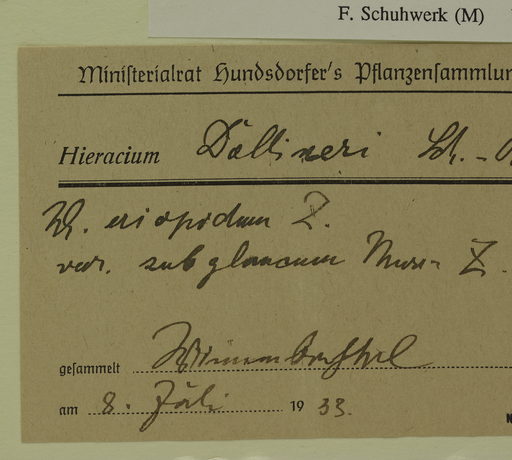 F. Schuhwerk (M)
Ministerialrat Hundsdorfer's Pflanzensammlun
Hieracium Döllineri Sch.-
eriopodum Z.
var. subglaucum Murr Z.
gesammelt
am 8. Juli 1933.